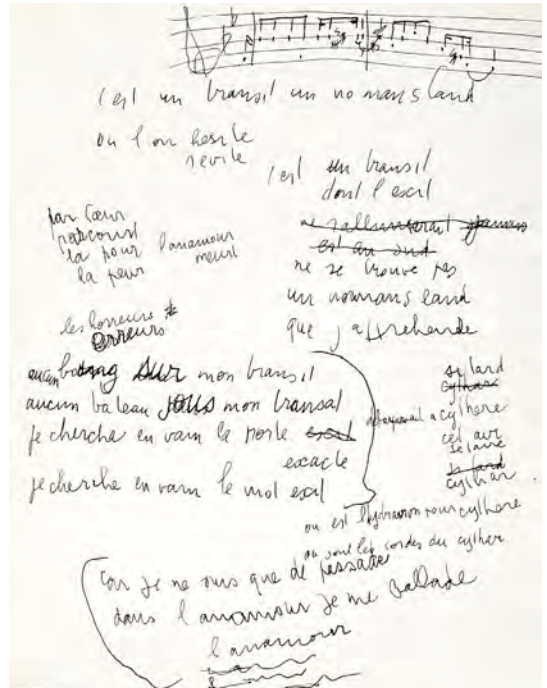 c'est un transit un no mans land
ou l'on hesite
c'est un transit
dont l'exit
par cœur
parcourt
la pour l'anamour
la peur meurt
ne se trouve pas
un nomans land
que j'apprehende
les horreurs
erreurs
aucun boeing sur mon transit
aucun bateau sous mon transat
je cherche en vain la porte
exacte
je cherche en vain le mot exit
si tard
a cythere
cet air
cythar
ou est l'hydravion pour cythere
ou sont les cordes du cythar
car je ne suis que de passage
dans l'anamour je me ballade
l'anamour